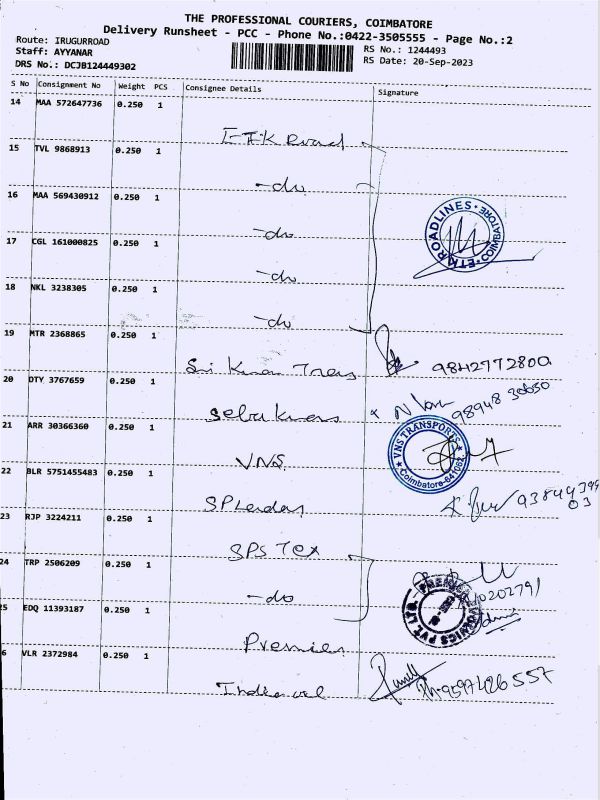 THE PROFESSIONAL COURIERS, COIMBATORE
Delivery Runsheet - PCC - Phone No.:0422-3505555 - Page No.:2
Route: IRUGURROAD
Staff: AYYANAR
RS No.: 1244493
DRS No.: DCJB124449302
RS Date: 20-Sep-2023
S No Consignment No Weight PCS Consignee Details Signature
14 MAA 572647736 0.250 1
15 TVL 9868913 0.250 1
-do
16 MAA 569430912 0.250 1
ETK ROADLINES COIMBATORE
-do
17 CGL 161000825 0.250 1
-do
18 NKL 3238305 0.250 1
-do
19 MTR 2368865 0.250 1
Sri Kumaran Trans 9842772800
20 DTY 3767659 0.250 1
98948 30650
21 ARR 30366360 0.250 1
VNS
VNS TRANSPORTS Coimbatore-641062
22 BLR 5751455483 0.250 1
23 RJP 3224211 0.250 1
SPS Tex
24 TRP 2506209 0.250 1
-do
25 EDQ 11393187 0.250 1
Premier
26 VLR 2372984 0.250 1
Ph-9597426557